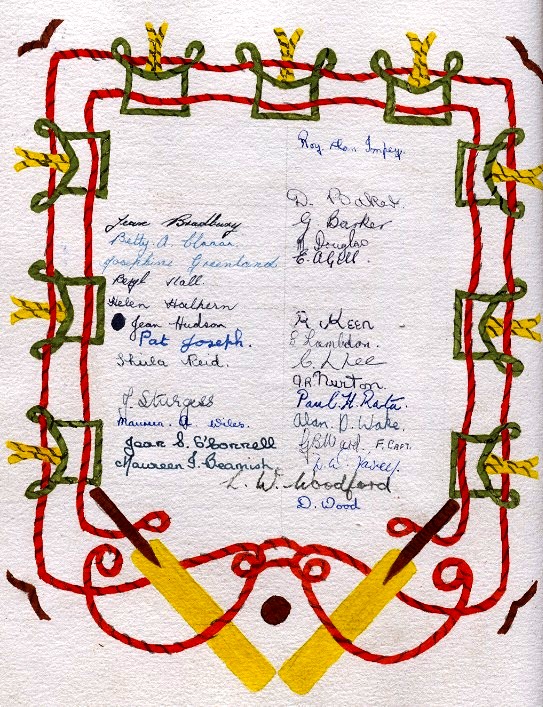 Roy Alan Impey.
Jean Bradbury
Betty A.
Josephine Greenland
Beryl Hall.
Helen Halhern
Jean Hudson
Pat Joseph.
Shiela Reid.
J. Sturgess
Maureen A Wiles.
Joan S. O'Connell
Maureen J. Beamish.
D. Baker.
G Barker
Douglas
E. A Gell.
Keen
E Lambdon.
C. L Lee
Nurton.
Paul. H. Rata.
Alan. D. Wake.
Ward F. CAPT.
L. W. Woodford
D. Wood